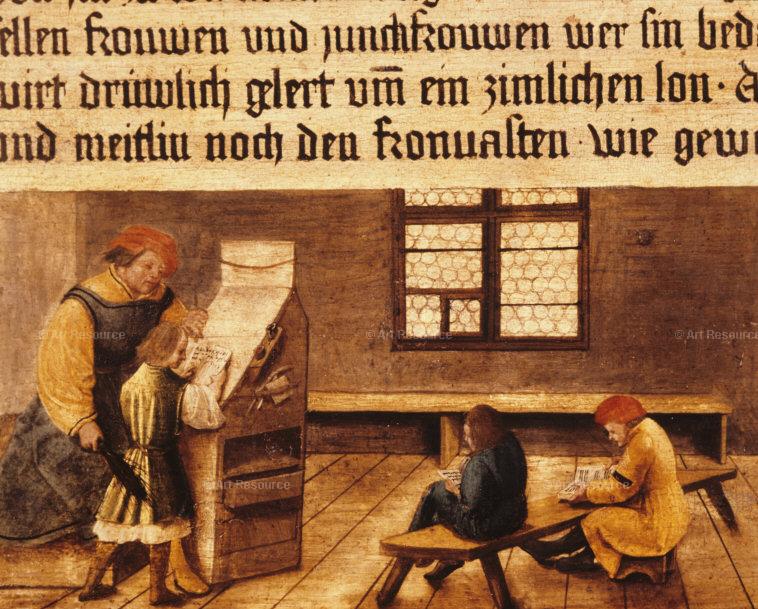 ellen frouwen vnd junckfrouwen wer sin bed
wirt drüwlich gelert vm̄ ein zimlichen lon ·
vnd meitlin noch den fronuasten · wie gew
© Art Resource © Art Resource © Art Resource
© Art Resource © Art Resource